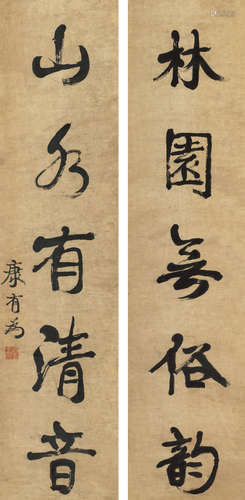 林園無俗韵
山水有清音
康有為